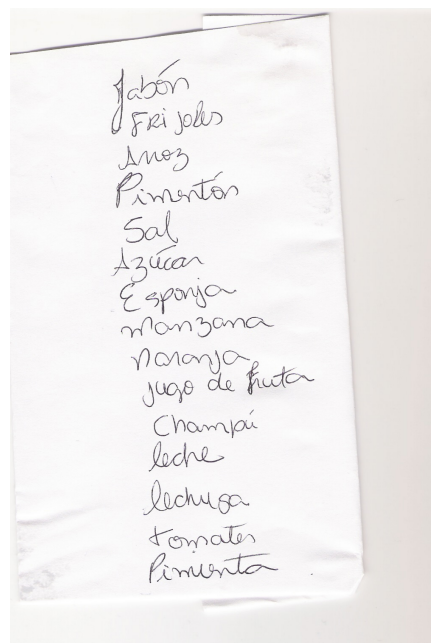 Jabón
FRijoles
Arroz
Pimentón
Sal
Azúcar
Esponja
manzana
naranja
jugo de fruta
Champú
leche
lechuga
tomates
Pimienta